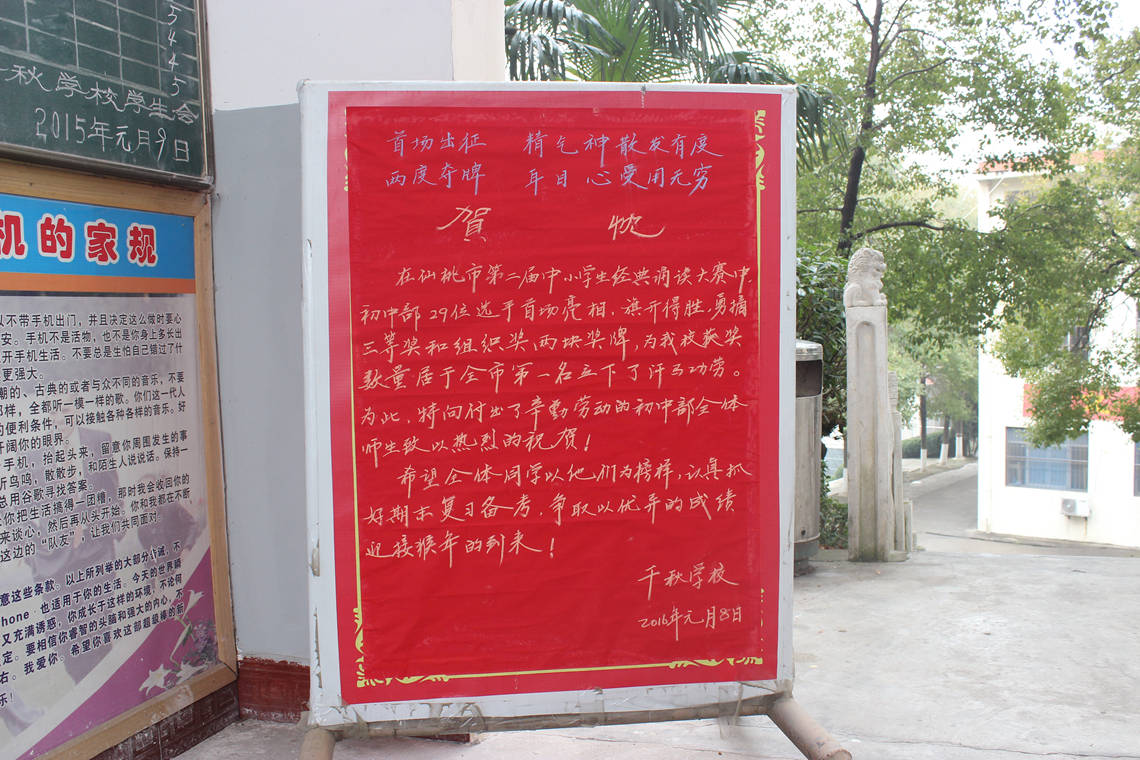 5
5
4
4
5
秋学校学生会
2015年元月9日
机的家规
以不带手机出门，并且决定这么做时要心
安。手机不是活物，也不是你身上多长出
开手机生活。不要总是生怕自己错过了什
更强大。
潮的、古典的或者与众不同的音乐，不要
那样，全都听一模一样的歌。你们这一代人
的便利条件，可以接触各种各样的音乐。好
开阔你的眼界。
手机，抬起头来，留意你周围发生的事
听鸟鸣，散散步，和陌生人说说话。保持一
总用谷歌寻找答案。
你把生活搞得一团糟，那时我会收回你的
来谈心，然后再从头开始。你和我都在不断
这边的“队友”，让我们共同面对。
意这些条款。以上所列举的大部分作诫，不
Phone 也适用于你的生活。今天的世界瞬
又充满诱惑，你成长于这样的环境，不论何
定。要相信你睿智的头脑和强大的内心，不
右。我爱你。希望你喜欢这部超级棒的新
乐！
首场出征 精气神散发有度
两度夺牌 耳目心受用无穷
贺 忱
在仙桃市第二届中小学生经典诵读大赛中
初中部29位选手首场亮相，旗开得胜，勇摘
三等奖和组织奖两块奖牌，为我校获奖
数量居于全市第一名立下了汗马功劳。
为此，特向付出了辛勤劳动的初中部全体
师生致以热烈的祝贺！
希望全体同学以他们为榜样，认真抓
好期末复习备考，争取以优异的成绩
迎接猴年的到来！
千秋学校
2016年元月8日